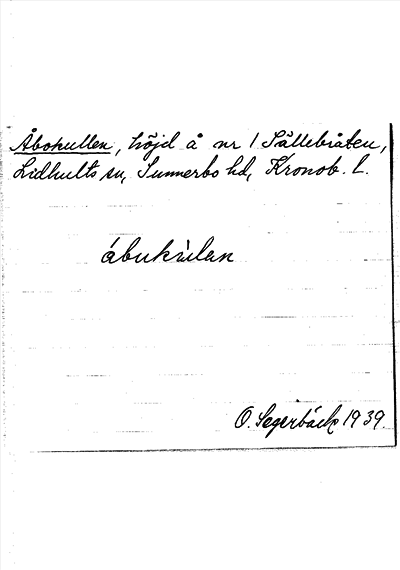 Åbokullen, höjd å nr 1 Sällebråten,
Lidhults sn, Sunnerbo hd, Kronob. L.
ábukùlan
O. Segerbäck 1939.